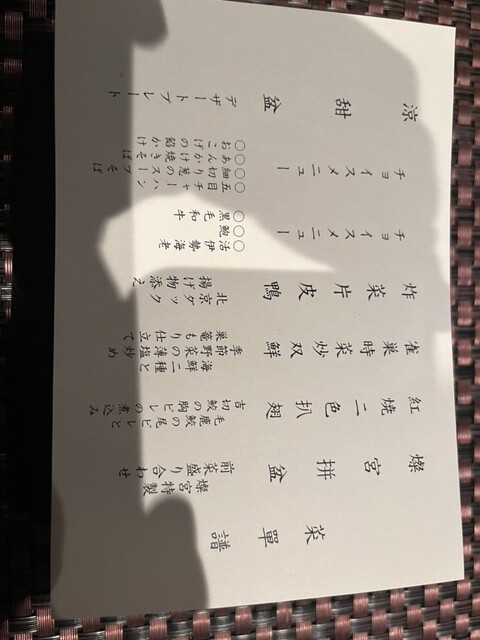 菜單譜
燦宮拼盆
燦宮特製
前菜盛り合わせ
紅焼二色扒翅
毛鹿鮫の尾ビレと
吉切鮫の胸ビレの煮込み
雀巣時菜炒双鮮
海鮮二種と
季節野菜の薄塩炒め
巣篭もり仕立て
炸菜片皮鴨
北京ダック
揚げ物添え
チョイスメニュー
○活伊勢海老
○鮑
○黒毛和牛
チョイスメニュー
○五目チャーハン
○細切り葱のスープそば
○あんかけ焼きそば
○おこげの餡かけ
涼甜盆
デザートプレート